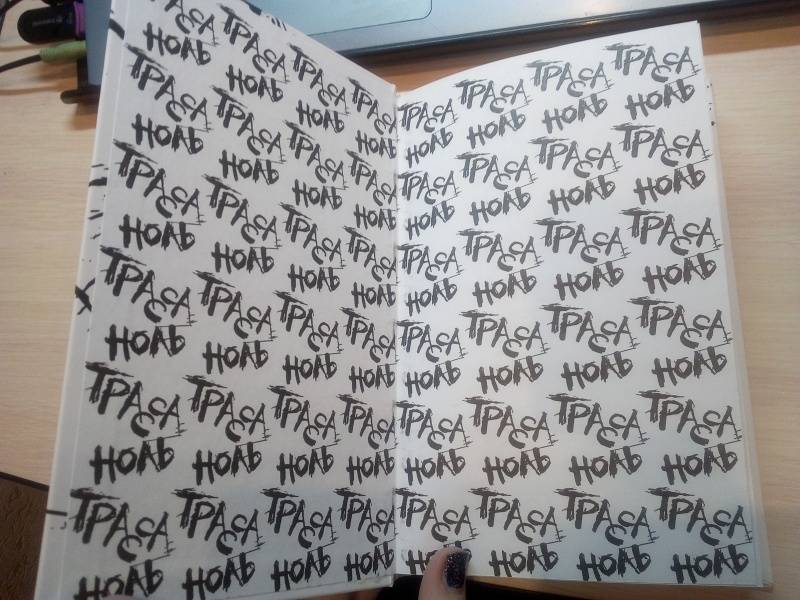 ТРАССА ТРАССА ТРАССА ТРАССА
НОЛЬ НОЛЬ НОЛЬ НОЛЬ
ТРАССА ТРАССА ТРАССА ТРАССА
НОЛЬ НОЛЬ НОЛЬ НОЛЬ
ТРАССА ТРАССА ТРАССА ТРАССА
НОЛЬ НОЛЬ НОЛЬ НОЛЬ
ТРАССА ТРАССА ТРАССА ТРАССА
НОЛЬ НОЛЬ НОЛЬ НОЛЬ
ТРАССА ТРАССА ТРАССА ТРАССА
НОЛЬ НОЛЬ НОЛЬ НОЛЬ
ТРАССА ТРАССА ТРАССА ТРАССА
НОЛЬ НОЛЬ НОЛЬ НОЛЬ
ТРАССА ТРАССА ТРАССА ТРАССА
НОЛЬ НОЛЬ НОЛЬ НОЛЬ
ТРАССА ТРАССА ТРАССА ТРАССА
НОЛЬ НОЛЬ НОЛЬ НОЛЬ
ТРАССА ТРАССА ТРАССА ТРАССА
НОЛЬ НОЛЬ НОЛЬ НОЛЬ
ТРАССА ТРАССА ТРАССА ТРАССА
НОЛЬ НОЛЬ НОЛЬ НОЛЬ
ТРАССА ТРАССА ТРАССА ТРАССА
НОЛЬ НОЛЬ НОЛЬ НОЛЬ
ТРАССА ТРАССА ТРАССА ТРАССА
НОЛЬ НОЛЬ НОЛЬ НОЛЬ